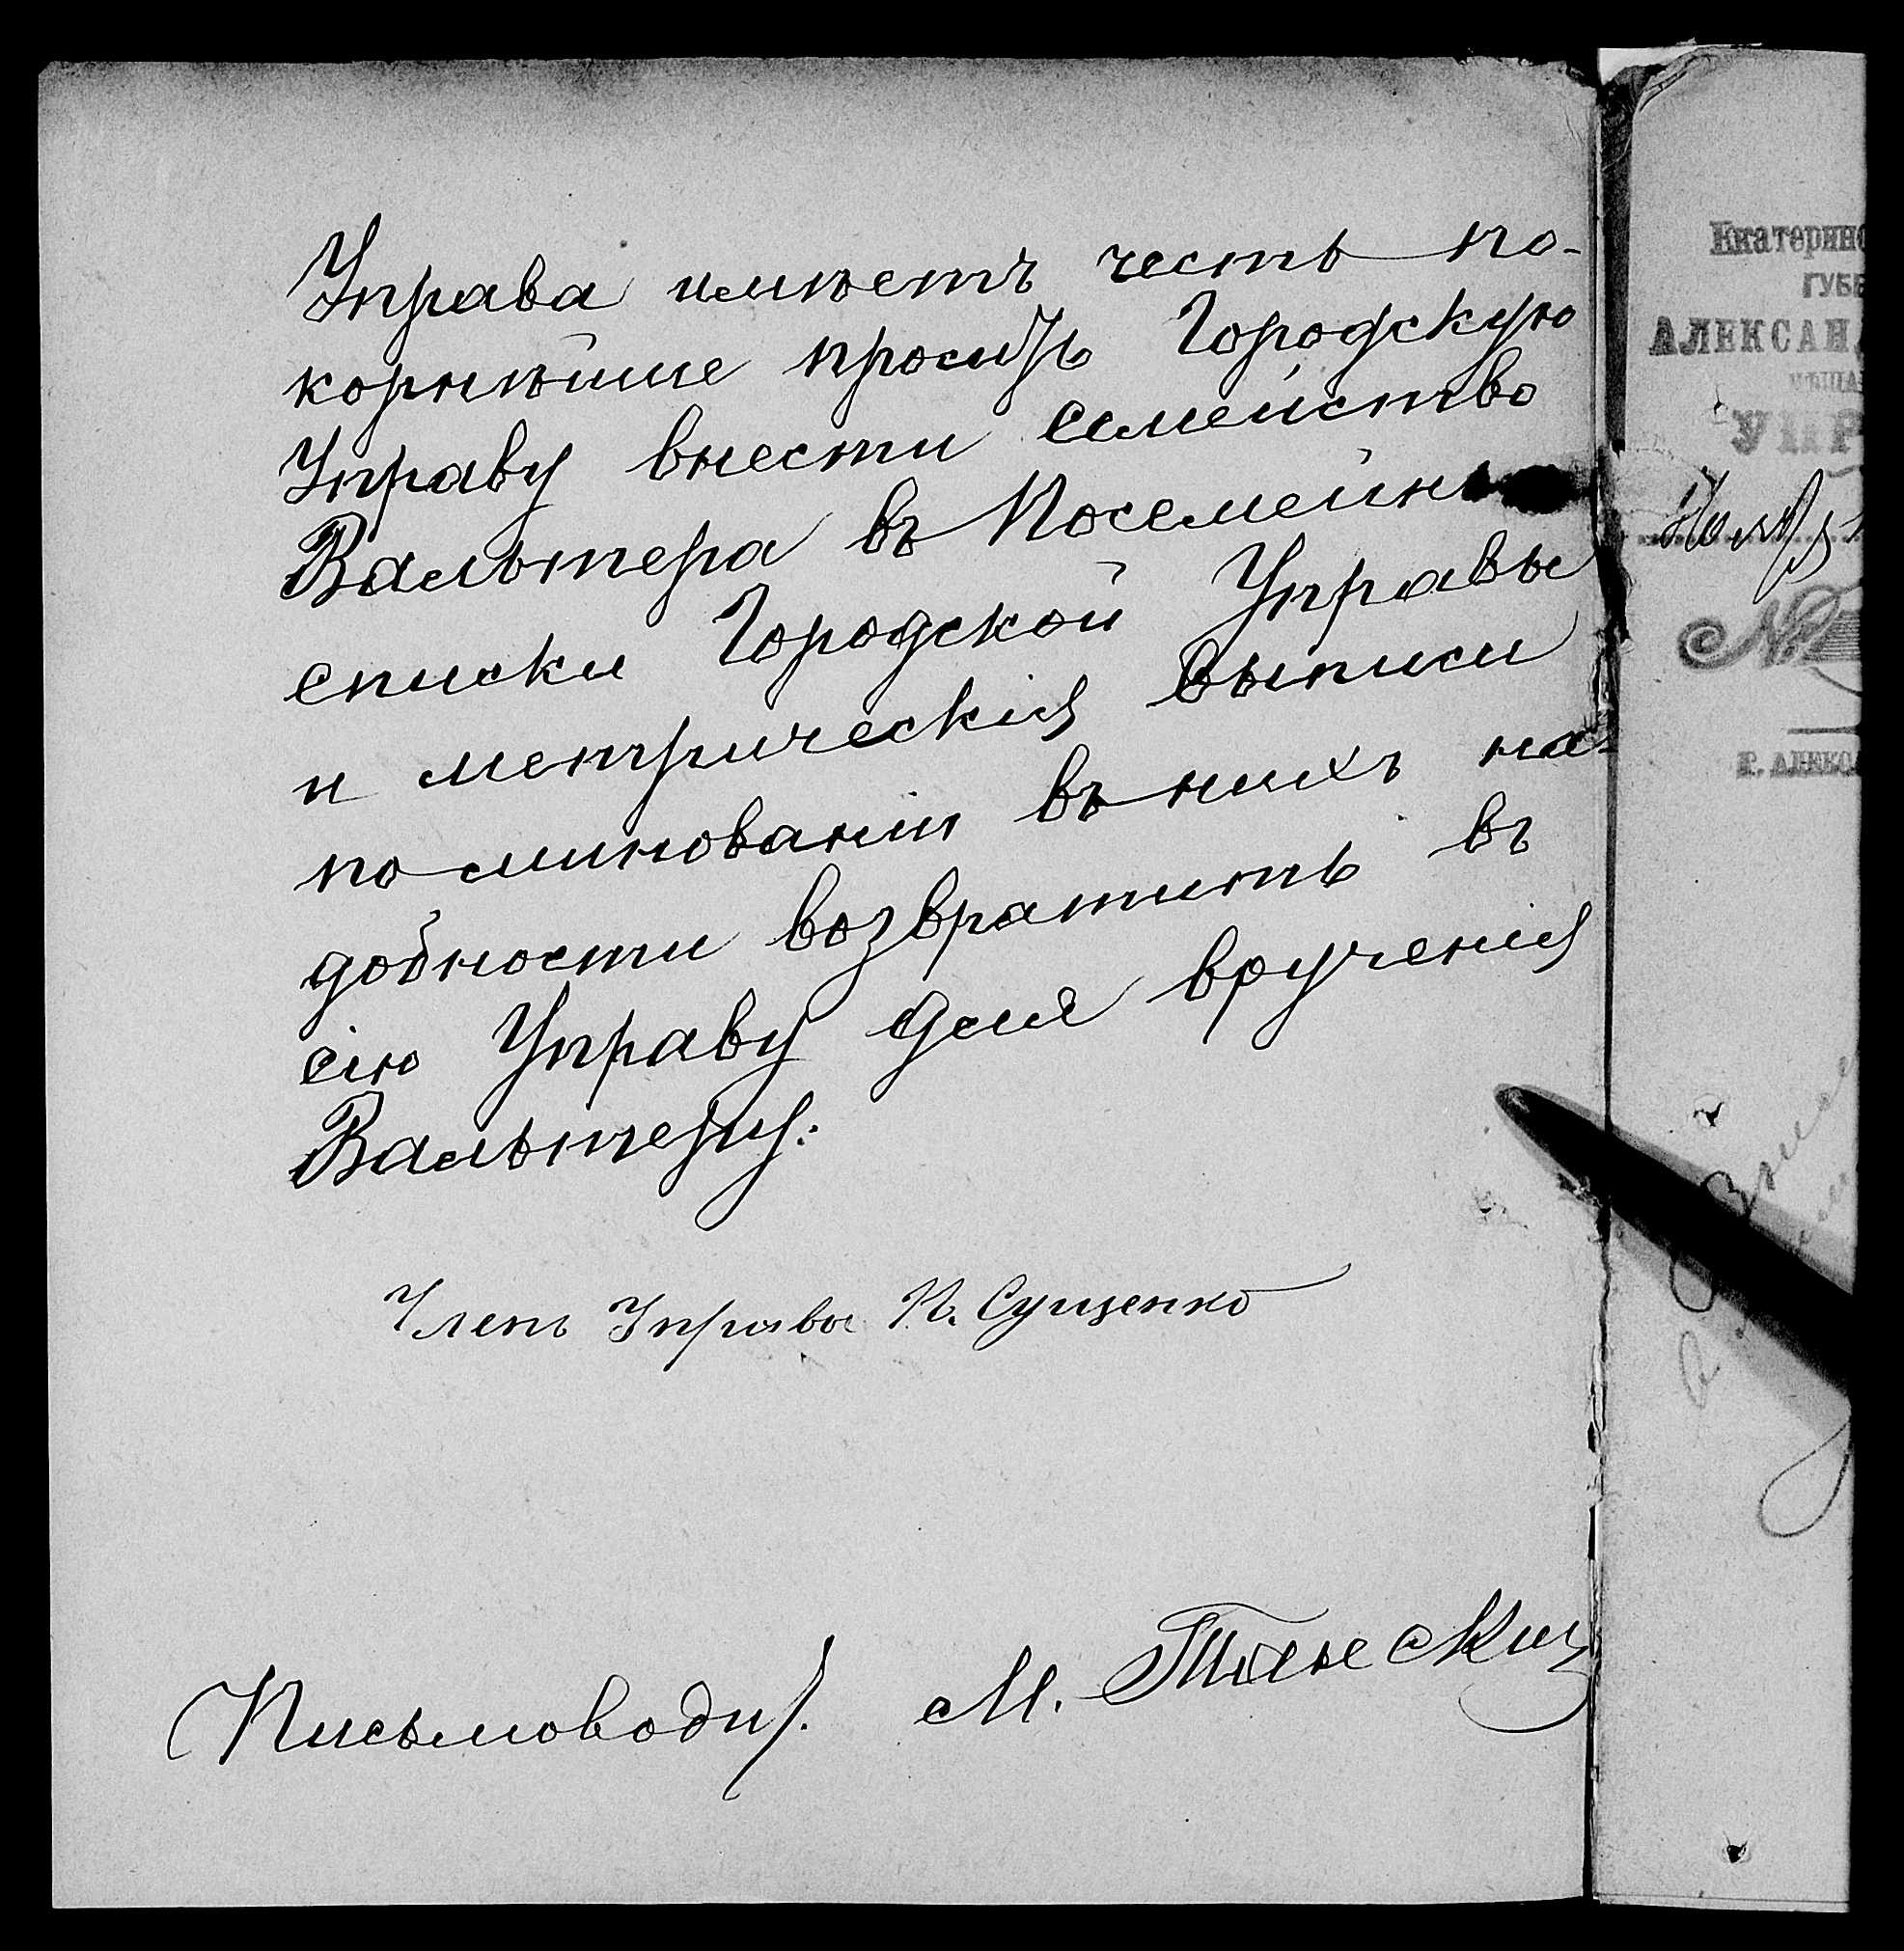 Управа имѣетъ честь по-
корнѣйше просить Городскую
Управу внести семейство
Вальтера въ Посемейны
списки Городской Управы
и метрическія выписи
по минованіи въ нихъ на-
добности возвратить въ
сію Управу для врученія
Вальтеру.
Членъ Управы П. Сущенко
Письмоводит. М.
Екатерино
ГУБЕ
АЛЕКСАН
УПР
№
Г. АЛЕКСА